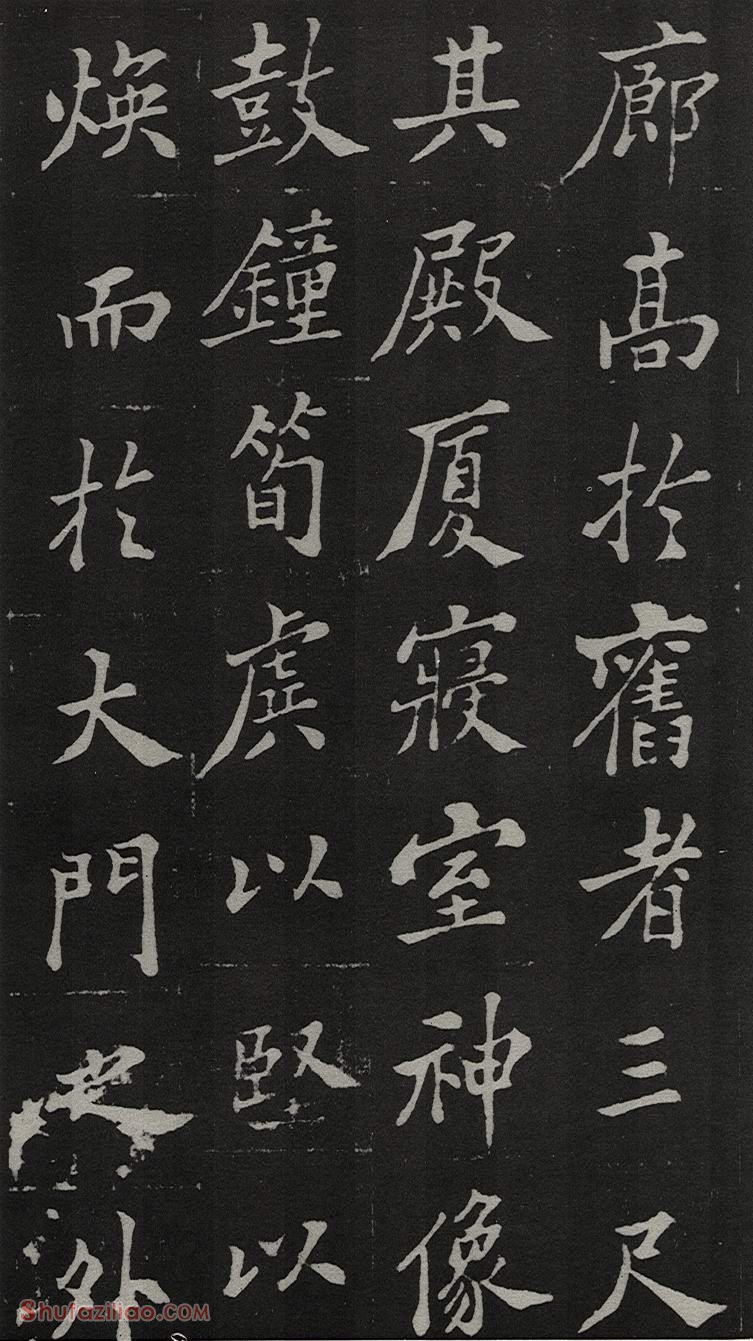 廊高於舊者三尺
其殿厦寢室神像
鼓鐘筍虡以堅以
煥而於大門之外
Shufaziliao.com